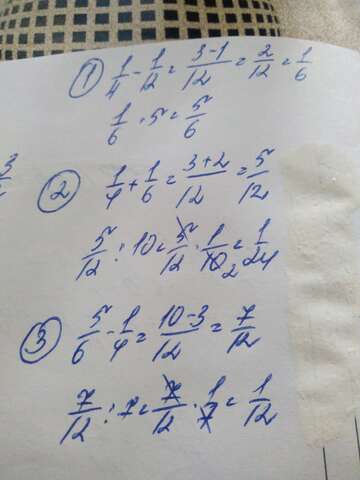 ① 1/4 - 1/12 = 3-1/12 = 2/12 = 1/6
1/6 · 5 = 5/6
② 1/4 + 1/6 = 3+2/12 = 5/12
5/12 : 10 = 5/12 · 1/10 2 = 1/24
③ 5/6 - 1/4 = 10-3/12 = 7/12
7/12 : 7 = 7/12 · 1/7 = 1/12